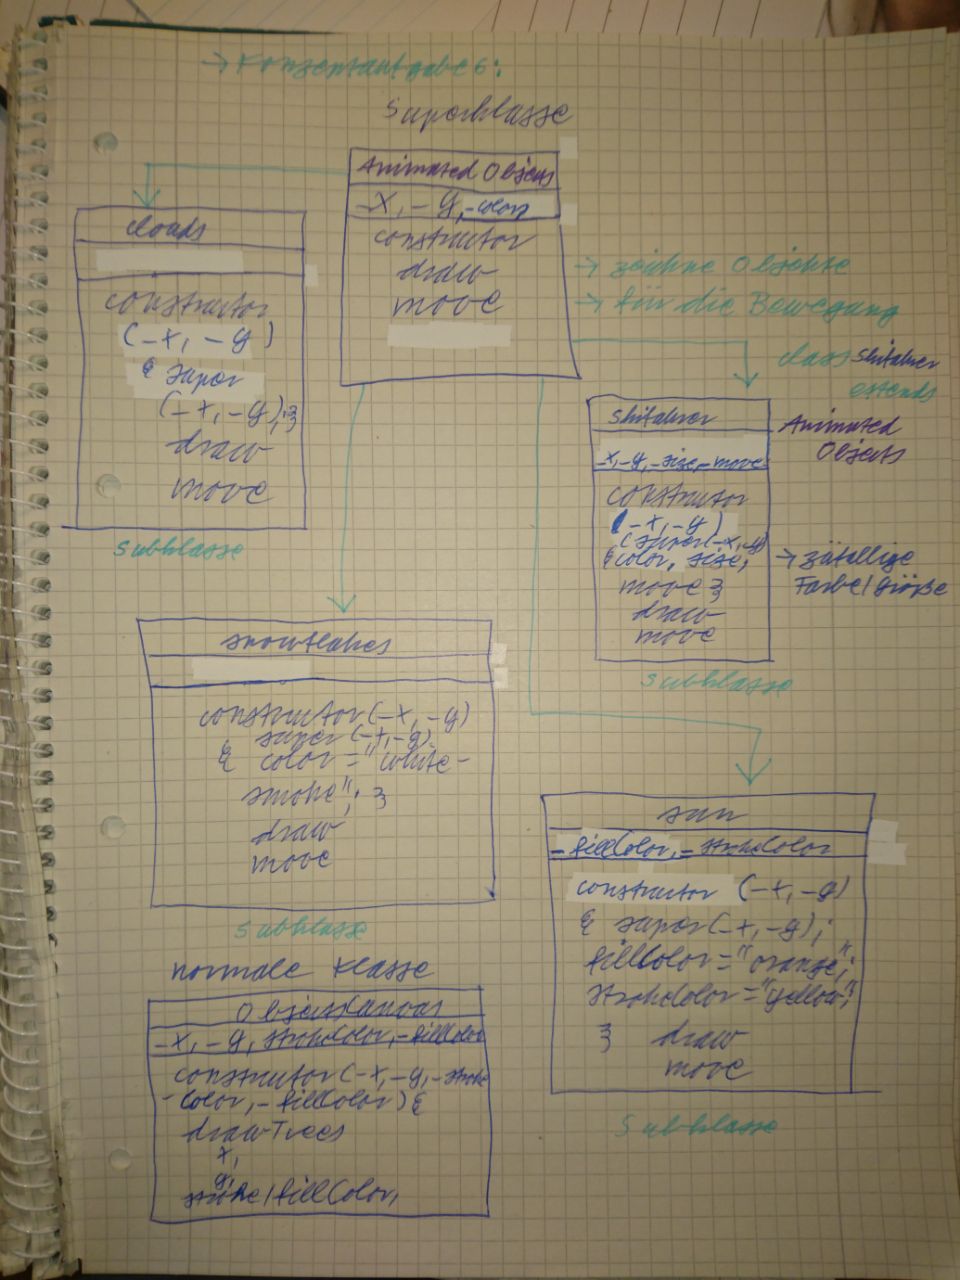 → Konzentaufgabe 6:
Superklasse
Animated Objects
-x, -y, -color
constructor
draw
move
→ zeichne Objekte
→ für die Bewegung
clouds
constructor
(-x, -y)
{ super
(-x, -y); }
draw
move
Subklasse
class Skifahrer
extends
Animated
Objects
Skifahrer
-x, -y, -size, -move
constructor
(-x, -y)
{ super(-x, -y)
{ color, size,
move }
draw
move
→ zufällige
Farbe/Größe
Subklasse
snowflakes
constructor(-x, -y)
super(-x, -y)
{ color = "white-
smoke"; }
draw
move
Subklasse
sun
-fillColor, -strokeColor
constructor (-x, -y)
{ super(-x, -y);
fillColor = "orange";
strokeColor = "yellow";
} draw
move
Subklasse
normale Klasse
ObjectsCanvas
-x, -y, strokeColor, -fillColor
constructor(-x, -y, -stroke
-Color, -fillColor) {
drawTrees
x,
y,
stroke/fillColor,